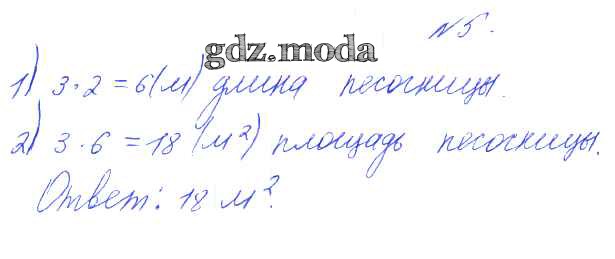 №5.
gdz.moda
1) 3·2=6(м) длина песочницы.
2) 3·6=18 (м²) площадь песочницы.
Ответ: 18 м².